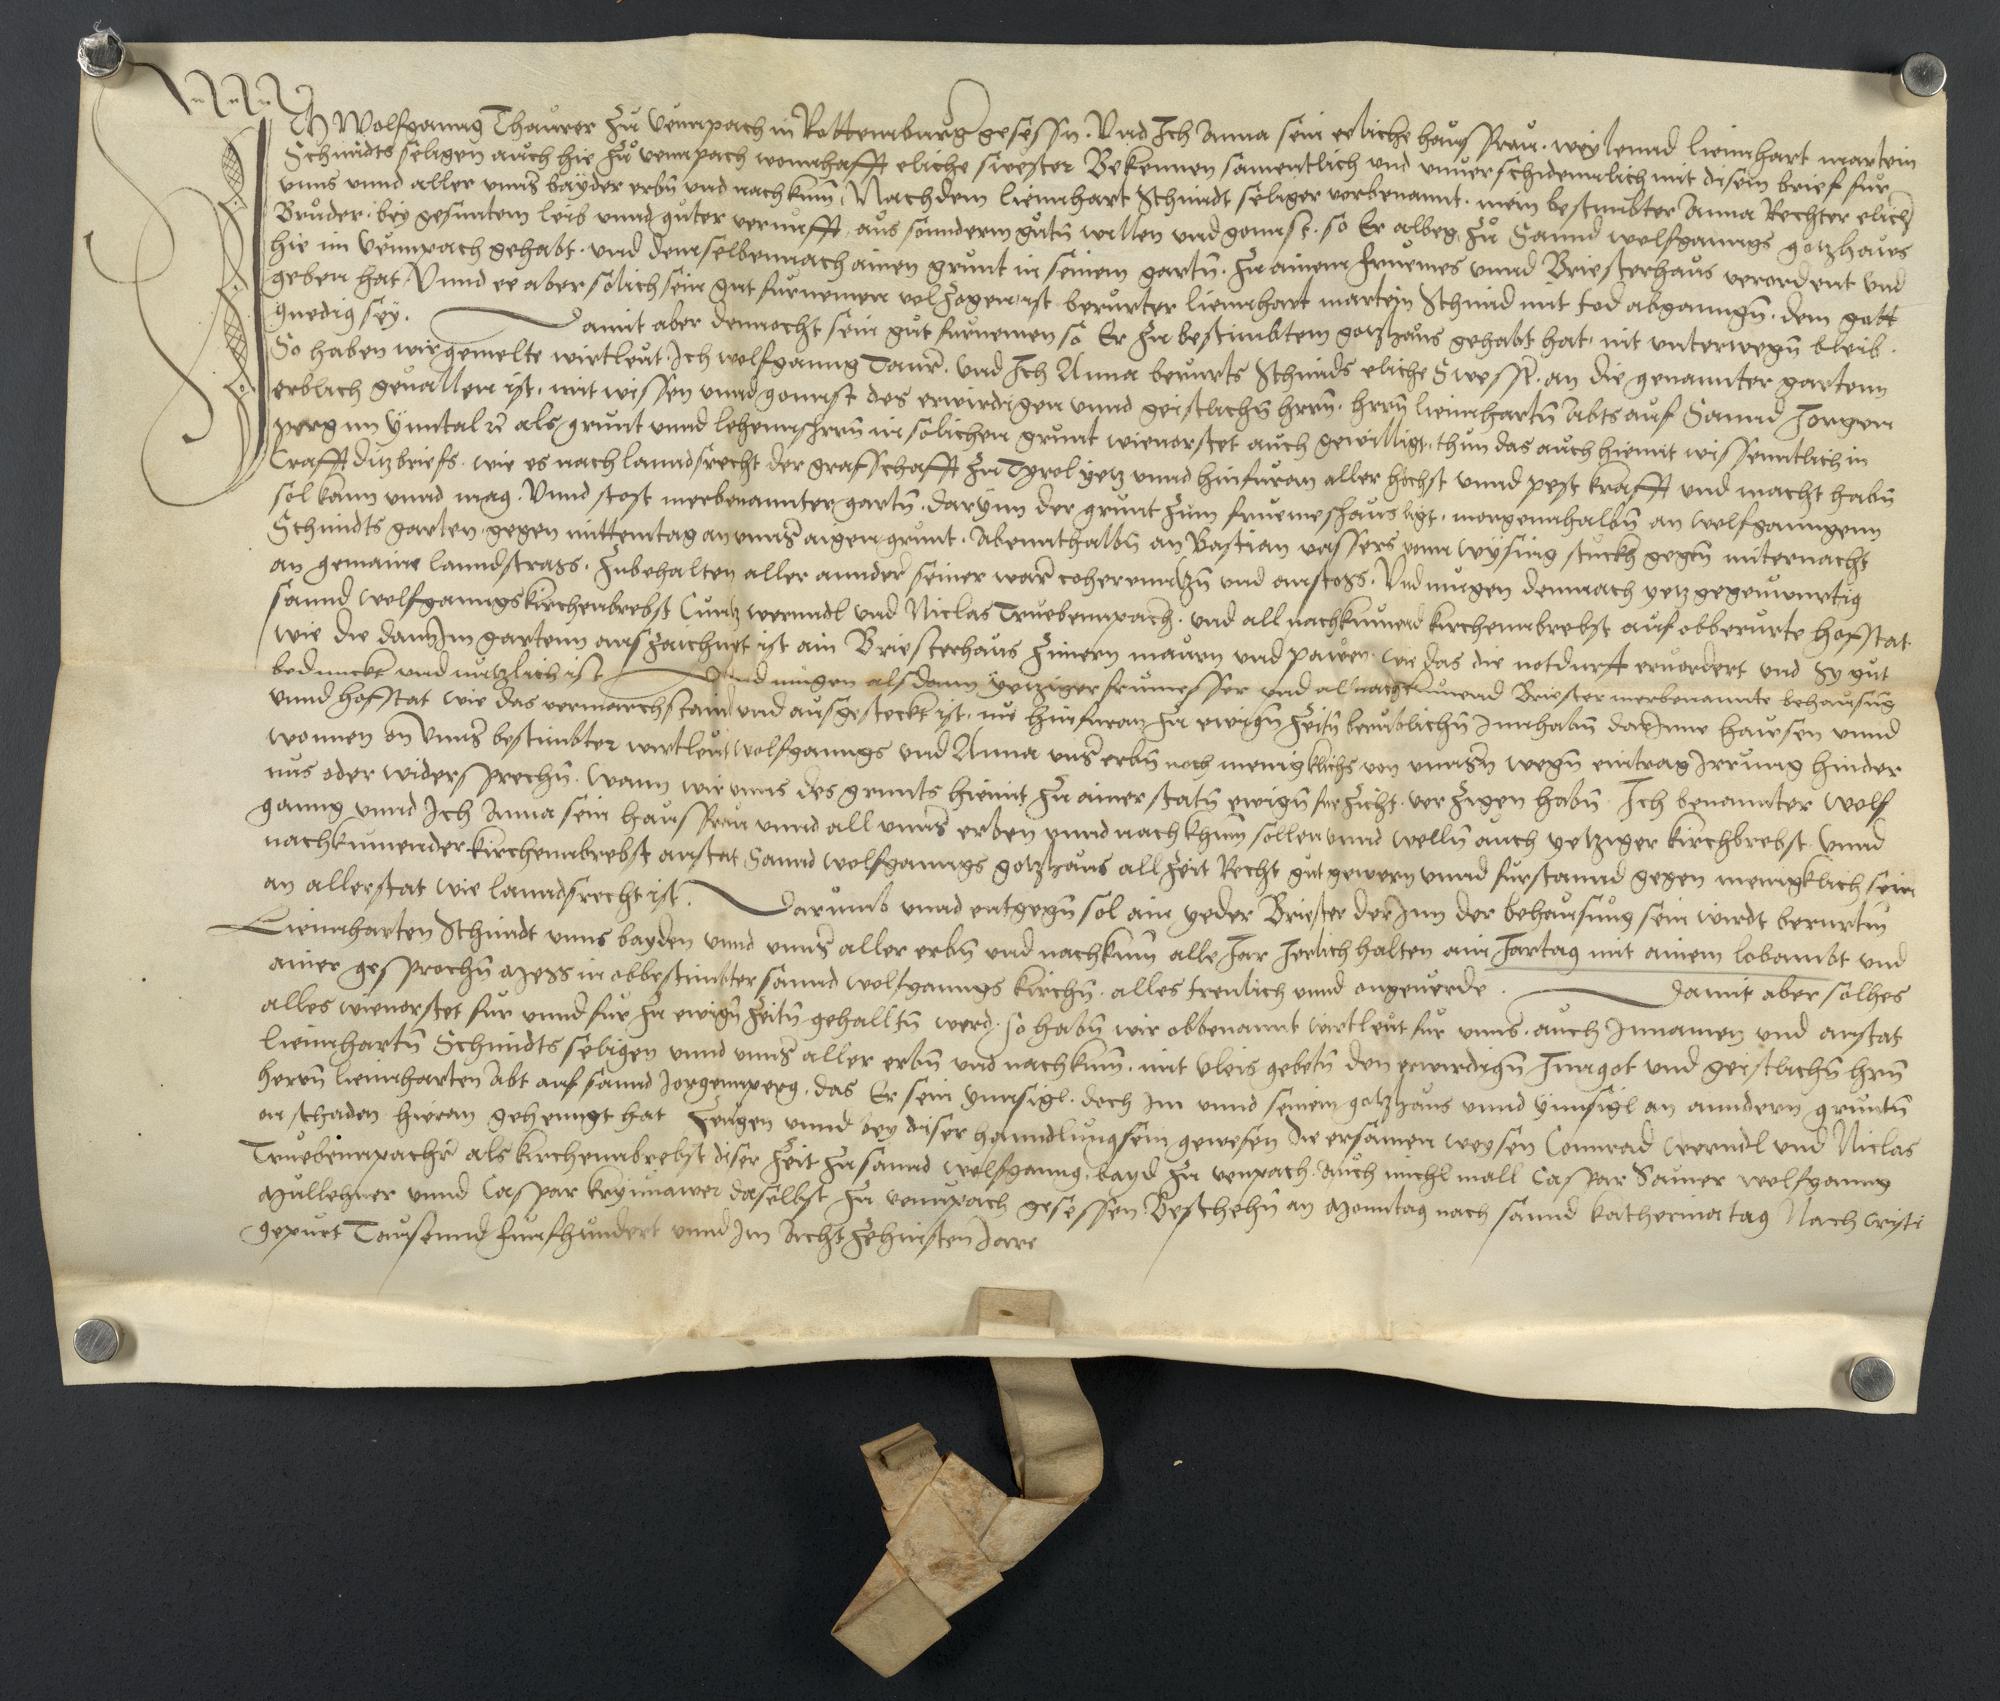 Ich Wolfganng Thaurer zu Vennpach in Rottemburg gesessn. Vnd Ich Anna sein eeliche haussfrau. weylennd liennhart martein
Schmidts seligen auch hie zu vennpach wonnhafft eliche swester Bekennen samentlich vnd vnuerschidennlich mit disem brief fur
vnns vnnd aller vnnser bayder erbn vnd nachkumm, Nachdem liennhart Schmidt seliger vorbenannt. mein bestimbter Anna Rechter elicher
Bruder. bey gesuntem leib vnnd guter vernufft. aus sonnderm gutn willen vnd gonnst. so Er albeg zu Sannd wolfganngs gotzhaus
hie im Vennpach gehabt. vnd demselbennach ainen grunt in seinem gartn. zu ainem fruemes vnnd Briesterhaus verordent vnd
geben hat. Vnnd ee aber solich sein gut furnemen volzogen ist berurter liennhart martein Schmid mit tod abganngn. dem gott
gnedig sey. Damit aber dennocht sein gut furnemen so Er zu bestimbtem gotzhaus gehabt hat. nit vnterwegn bleib.
So haben wir gemelte wirtleut. Ich wolfganng Taurer. vnd Ich Anna berurts Schmids eliche Swester. an die genannter gartenn
erblich geuallen ist. mit wissen vnnd gonnst des erwirdigen vnnd geistlichn hrrn. hrrn liennhartn Abts auf Sannd Jorgen
perg im Ynntal rc als grunt vnnd lehennshrrn in solichen grunt wieuorstet auch gewilligt. thun das auch hiemit wissenntlich in
Crafft ditzbriefs. wie es nach lanndsrecht der grafschafft zu Tyrol yetz vnnd hinfuran aller hochst vnnd pest krafft vnd macht habn
sol kann vnnd mag. Vnnd stost merbenannter gartn. darynn der grunt zum fruemeshaus ligt. morgennhalbn an wolfganngenn
Schmidts garten. gegen mittemtag an vnnser aigen grunt. Abennthalbn an Bastian vassers vonn wysing stuckh gegen miternacht
an gemaine lanndstrass. zubehalten aller annder seiner warn coherenntzn vnd anstoss. Vnd mugen demnach yetz gegenwurtig
sannd wolfganngs kirchenbrebst Cuntz werndl vnd Niclas Truebennpacher. vnd all nachkumend kirchennbrebst auf obberurte hofstat.
wie die dann Im gartenn auszaichnet ist ain Briesterhaus zimern mauren vnd pawen. wie das die notdurft eruordert vnd Sy gut
bedunckt vnd nutzlich ist Vnnd mugen alsdann yetziger frumesser vnd all nachkumend Briester merbenannte behausung
vnnd hofstat wie das vermarchstaint vnd ausgesteckt ist. nu hinfuran zu ewign zeitn berublichn Innhabn darinne hausen vnnd
wonnen on vnnser bestimbter wirtleut wolfganngs vnd Anna vnser erbn noch menigklichs von vnnsern wegn eintrag Irrung hinder
nus oder widersprechn. wann wir vnns des grunts hiemit zu ainer statn ewign furzicht. verzigen habn. Ich benannter wolf
ganng vnnd Ich Anna sein hausfrau vnnd all vnnser erben vnnd nachkhumm sollen vnnd welln auch yetziger kirchbrebst vnnd
nachkumender kirchennbrebst anstat Sannd wolfganngs gotzhaus allzeit Recht gut gewern vnnd furstannd gegen menigklich sein
an aller stat wie lanndsrecht ist. Darumb vnnd entgegn sol ain yeder Briester der Inn der behausung sein wirdt berurtn
Liennharten Schmidt vnns bayden vnnd vnnser aller erbn vnd nachkumm alle Jar Jerlich halten ain Jartag mit ainem lobambt vnd
ainer gesprochn Mess in obbestimbter sannd wolfganngs kirchn. alles treulich vnnd ongeuerde. Damit aber solhes
alles wieuorstet fur vnnd fur zu ewign zeitn gehalltn werd. so habn wir obbenannt wirtleut fur vnns. auch Innamen vnd anstat
liennhartn Schmidts seligen vnnd vnnser aller erbn vnd nachkumm. mit vleis gebetn den erwirdign Inn got vnd geistlichn hrrn
herrn liennharten Abt auf sannd Jorgennperg. das Er sein Ynnsigl. doch Im vnnd seinem gotzhaus vnnd Ynnsigl an anndern gruntn
on schaden hieran gehenngt hat zeugen vnnd bey diser hanndlung sein gewesen die ersamen weysen Connrad werndl vnd Niclas
Truebennpacher als kirchennbrebst diser zeit zu sannd wolfganng. bayd zu venpach. Auch michl mall Caspar Sauner wolfganng
Mullehner vnnd Caspar kryinawer daselbst zu vennpach gesessen Beschehn an Monntag nach sannd katherina tag Nach cristi
gepurt Tausennd funfhundert vnnd Im Achtzehnsten Jare